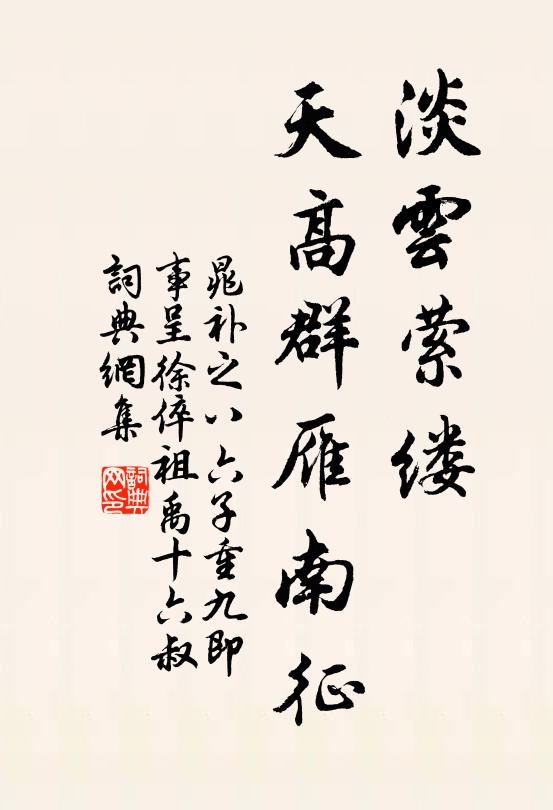 淡雲萦缕
天高群雁南征
晁补之八六子重九即
事呈徐倅祖禹十六叔
詞典網集
詞典网印